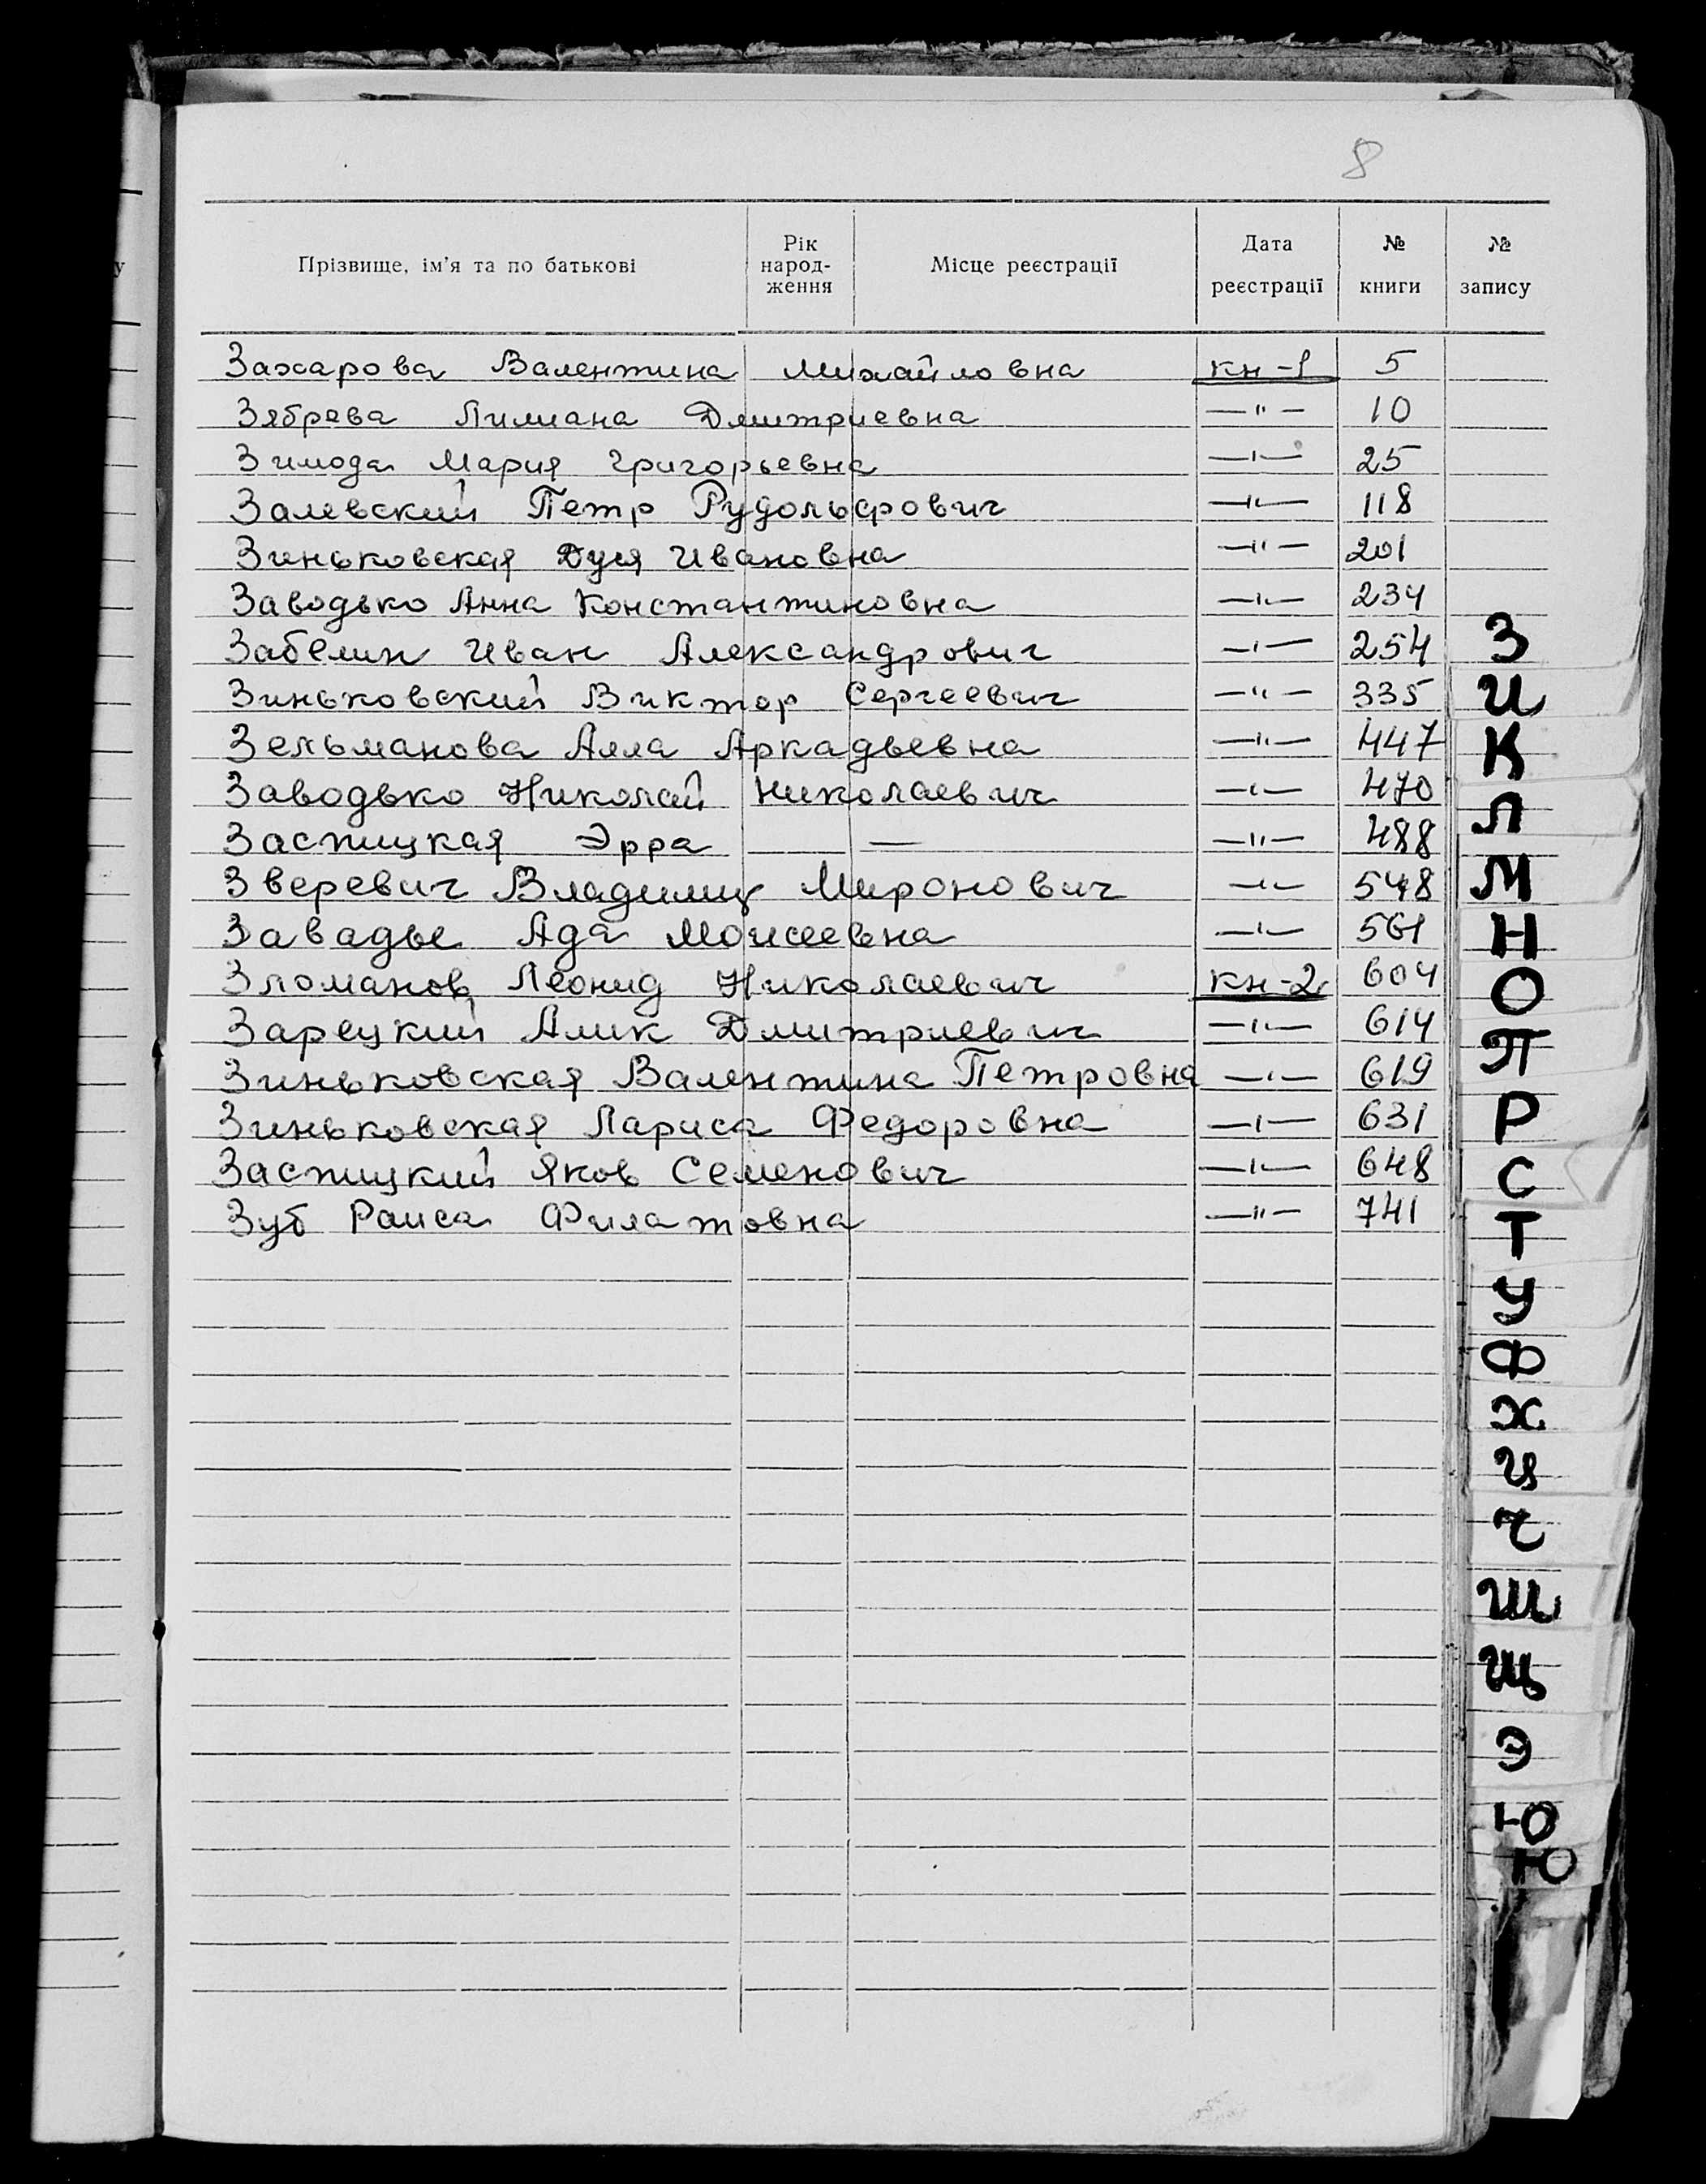 8
Прізвище, ім'я та по батькові Рік народ- ження Місце реєстрації Дата реєстрації № книги № запису
Захарова Валентина Михайловна кн-1 5
Зябрева Лилиана Дмитриевна —"— 10
Зимода Мария Григорьевна —"— 25
Залевский Петр Рудольфович —"— 118
Зиньковская Дуся Ивановна —"— 201
Заводько Анна Константиновна —"— 234
Забелин Иван Александрович —"— 254
Зиньковский Виктор Сергеевич —"— 335
Зельманова Алла Аркадьевна —"— 447
Заводько Николай Николаевич —"— 470
Заспицкая Эрра — — —"— 488
Зверевич Владимир Миронович —"— 548
Завадье Ада Моисеевна —"— 561
Зломанов Леонид Николаевич кн-2 604
Зарецкий Алик Дмитриевич —"— 614
Зиньковская Валентина Петровна —"— 619
Зиньковская Лариса Федоровна —"— 631
Заспицкий Яков Семенович —"— 648
Зуб Раиса Филатовна —"— 741
З
И
К
Л
М
Н
О
П
Р
С
Т
У
Ф
Х
Ц
Ч
Ш
Щ
Э
Ю
Ю